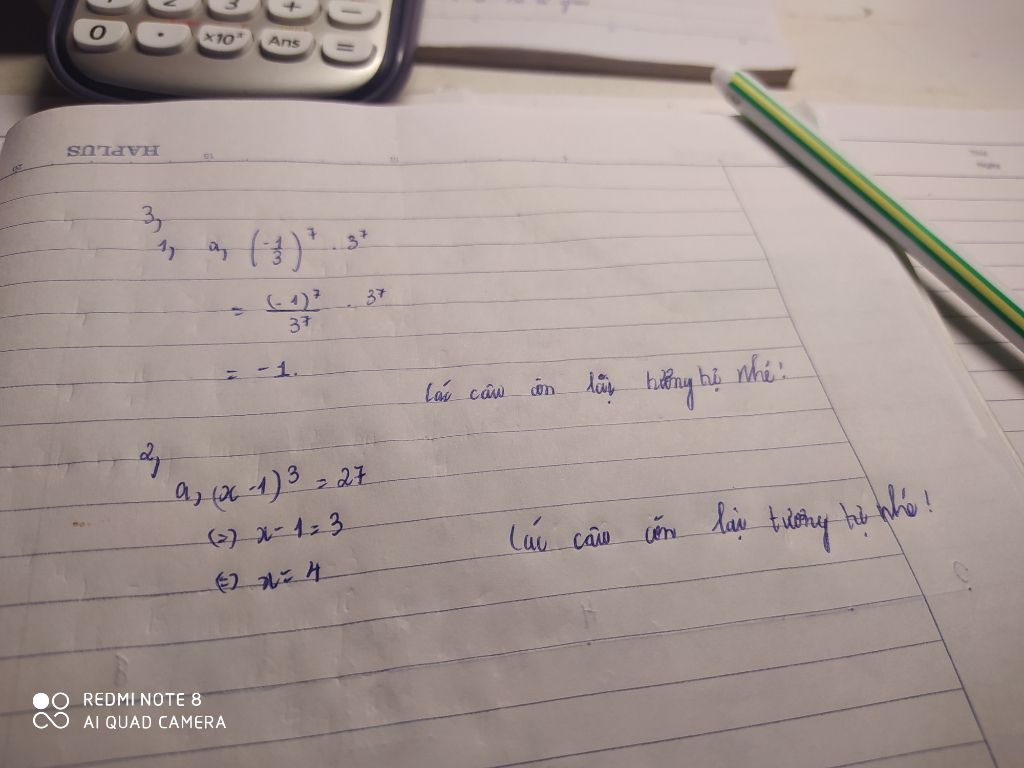 0 · ×10ˣ Ans =
HAPLUS
3,
1, a, (-1/3)^7 . 3^7
= (-1)^7/3^7 . 3^7
= -1.
Các câu còn lại tương tự nhé!
2,
a, (x - 1)^3 = 27
(=) x - 1 = 3
(=) x = 4
Các câu còn lại tương tự nhé!
REDMI NOTE 8
AI QUAD CAMERA